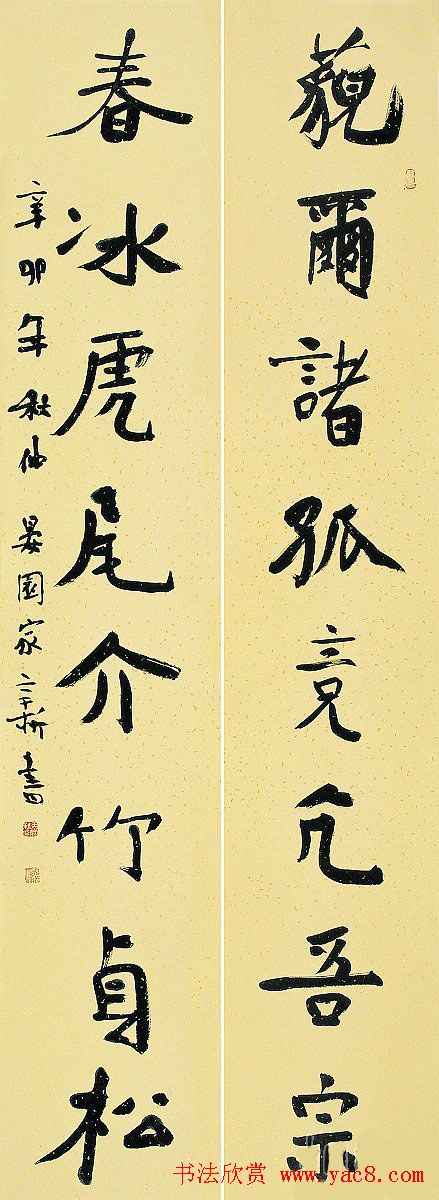 藐爾諸孤竟亢吾宗
春冰虎尾介竹貞松
辛卯年秋仲晏園家書
书法欣赏 www.yac8.com